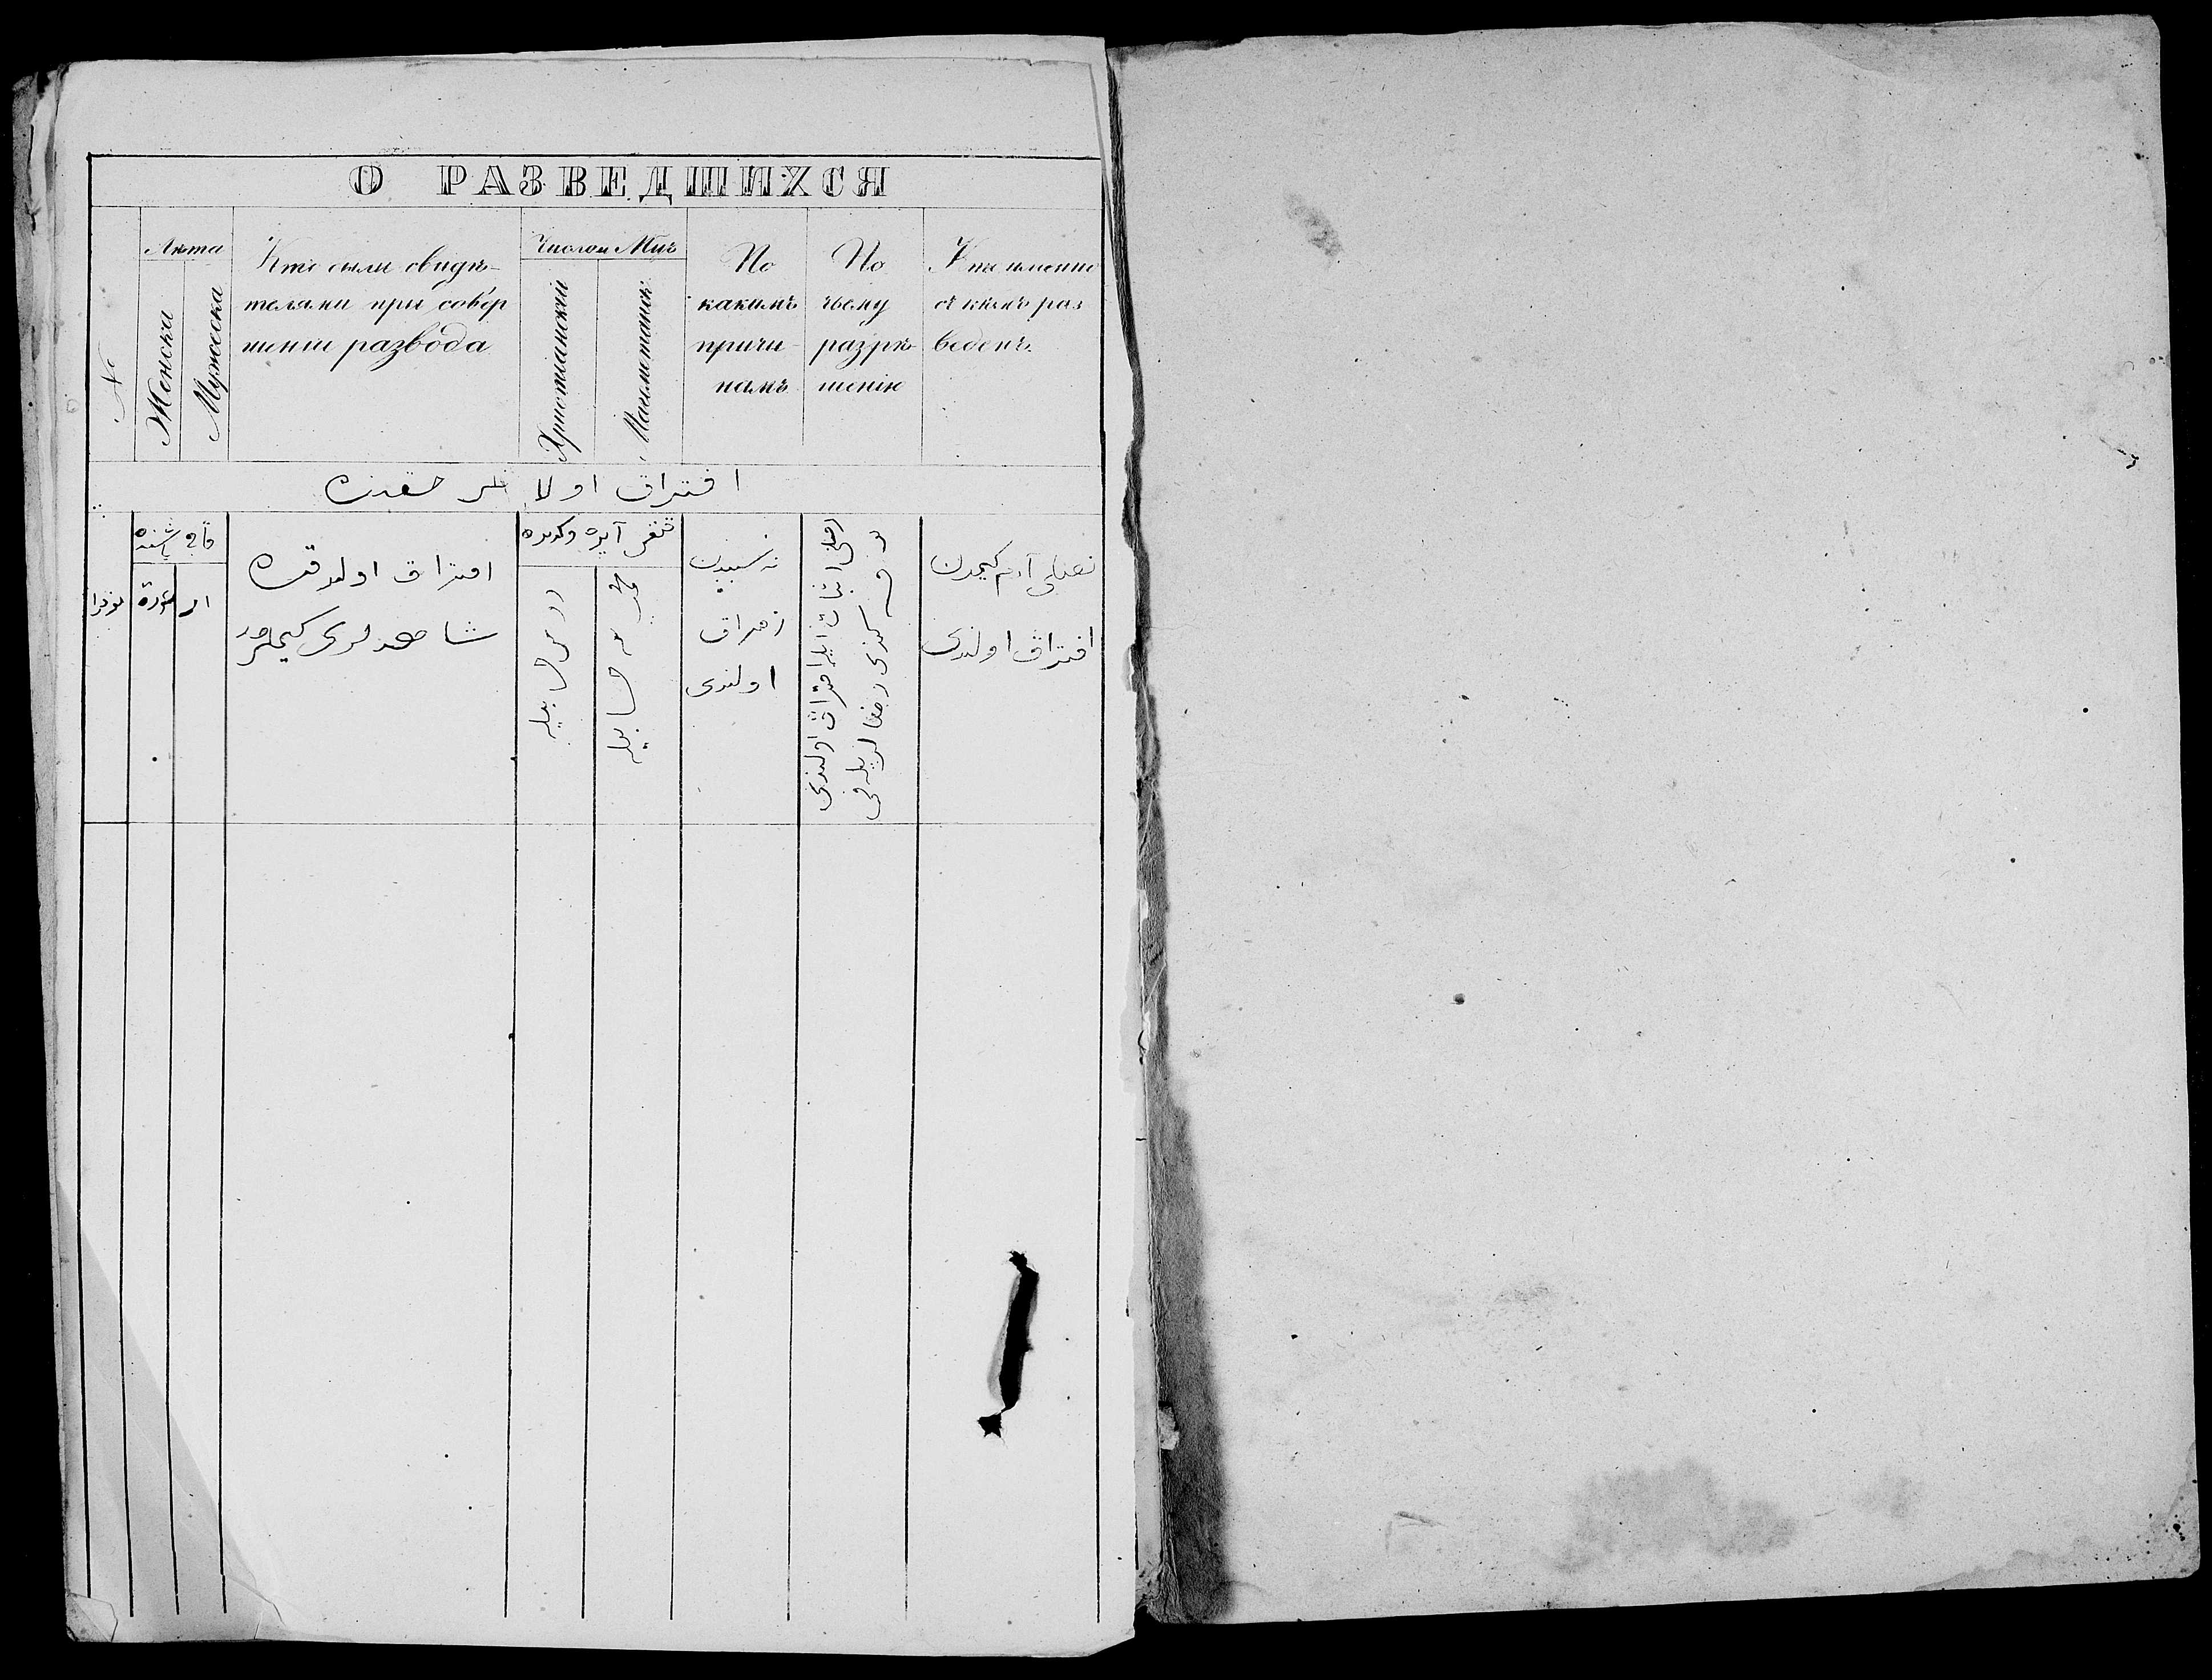 О РАЗВЕДШИХСЯ
№
Лѣта
Женска
Мужеска
Кто были свидѣ-
телями при совер
шеніи развода
Число и Мѣс
Христіанскій
Магометанск
По
какимъ
причи-
намъ
По
чьему
разрѣ-
шенію
Кто именно
съ кѣмъ раз
веденъ.
افتراق اولانلر حقنده
قاچ ياشنده
عورة
ار
افتراق اولدقده
شاهدلری کیملردر
نه سببدن
افتراق
اولندی
آدم کیمدن
افتراق اولندی